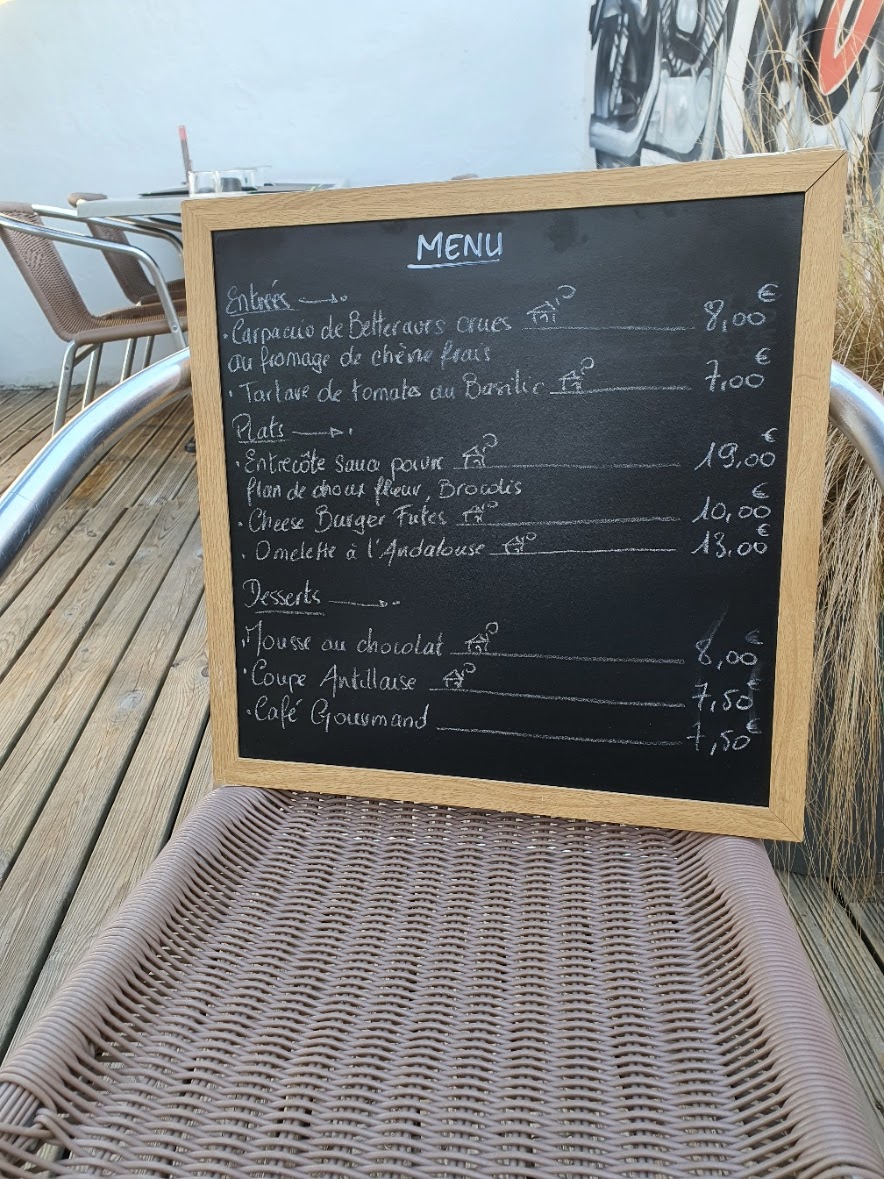 MENU
Entrées
• Carpaccio de Betteravs crues 8,00 €
au fromage de chèvre frais
• Tartare de tomates au Basilic 7,00 €
Plats
• Entrecôte sauce poivre 19,00 €
flan de choux fleur, Brocolis
• Cheese Burger Frites 10,00 €
• Omelette à l'Andalouse 13,00 €
Desserts
• Mousse au chocolat 8,00 €
• Coupe Antillaise 7,50 €
• Café Gourmand 7,50 €